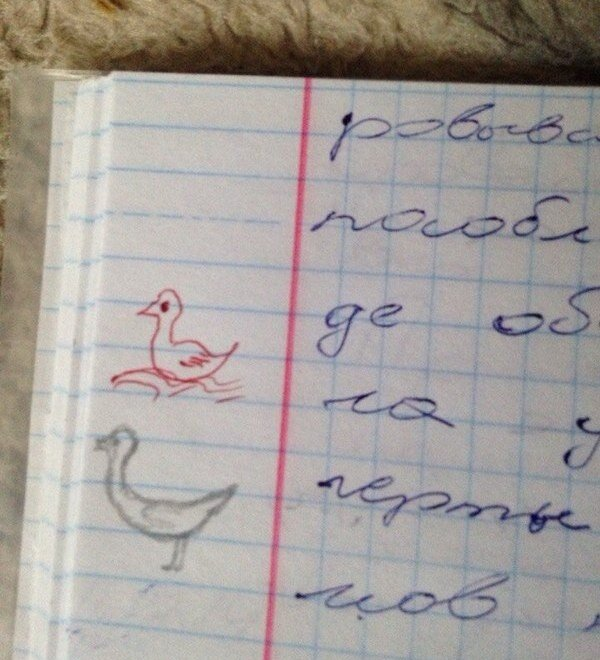 ровыва
пособл
де об
ла у
черты
мов